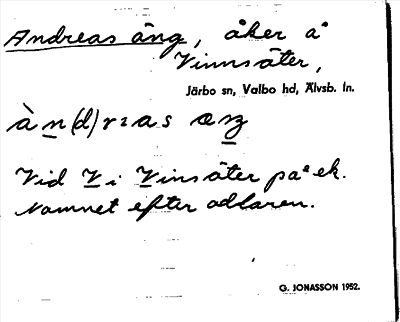 Andreas äng, åker å
Vinnsäter,
Järbo sn, Valbo hd, Älvsb. ln.
àn(d)rɛas æŋ
Vid V i Vinsäter på ek.
Namnet efter odlaren.
G. JONASSON 1952.